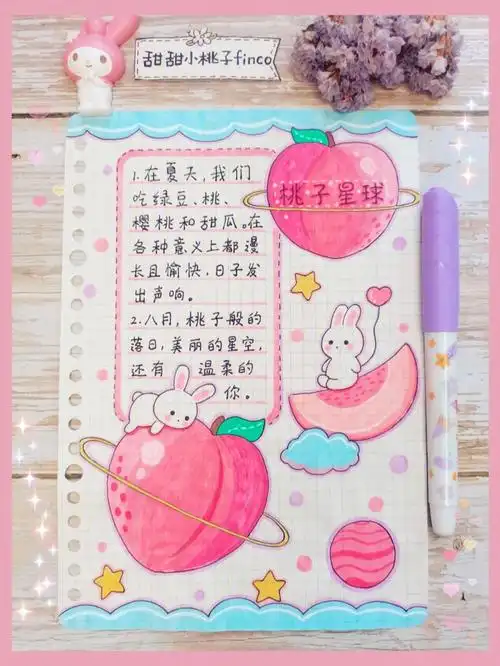 甜甜小桃子finco
桃子星球
1.在夏天,我们
吃绿豆、桃、
樱桃和甜瓜。在
各种意义上都漫
长且愉快,日子发
出声响。
2.八月,桃子般的
落日,美丽的星空,
还有 温柔的
你。